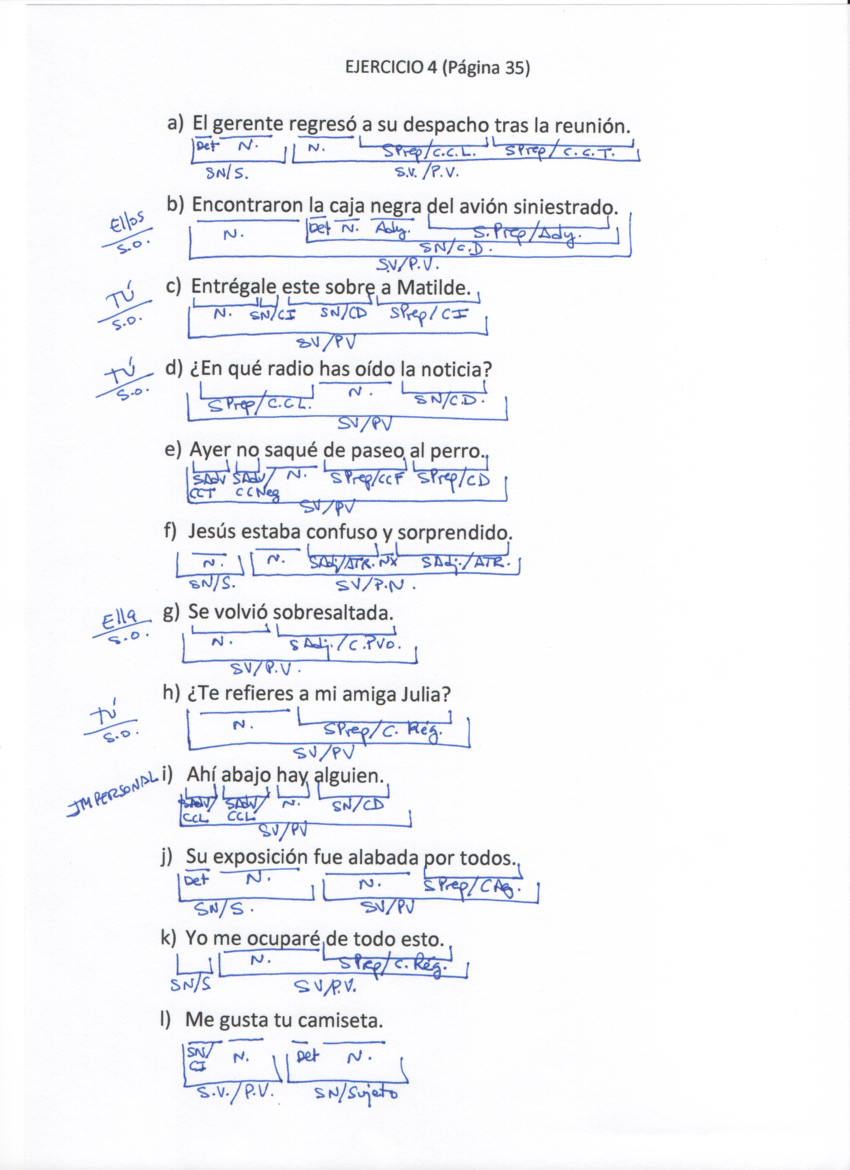 EJERCICIO 4 (Página 35)
a) El gerente regresó a su despacho tras la reunión.
Det N. N. SPrep/C.C.L. SPrep/C.C.T.
SN/S. S.V./P.V.
b) Encontraron la caja negra del avión siniestrado.
Ellos
S.O.
N. Det N. Ady. S.Prep/Ady.
SN/C.D.
SV/P.V.
c) Entrégale este sobre a Matilde.
TÚ
S.O.
N. SN/CI SN/CD SPrep/CI
SV/PV
d) ¿En qué radio has oído la noticia?
TÚ
S.O.
SPrep/C.CL. N. SN/C.D.
SV/PV
e) Ayer no saqué de paseo al perro.
SAdv SAdv/ N. SPrep/CCF SPrep/CD
CCT CCNeg
SV/PV
f) Jesús estaba confuso y sorprendido.
N. N. SAdj/ATR. NX SAdj./ATR.
SN/S. SV/P.N.
g) Se volvió sobresaltada.
Ella
S.O.
N. SAdj./C.PVO.
SV/P.V.
h) ¿Te refieres a mi amiga Julia?
tú
S.O.
N. SPrep/C. Rég.
SV/PV
IMPERSONAL i) Ahí abajo hay alguien.
SAdv/ SAdv/ N. SN/CD
CCL CCL
SV/PV
j) Su exposición fue alabada por todos.
Det N. N. SPrep/CAg.
SN/S. SV/PV
k) Yo me ocuparé de todo esto.
N. SPrep/C.Rég.
SN/S SV/P.V.
l) Me gusta tu camiseta.
SN/ N. Det N.
CI
S.V./P.V. SN/Sujeto